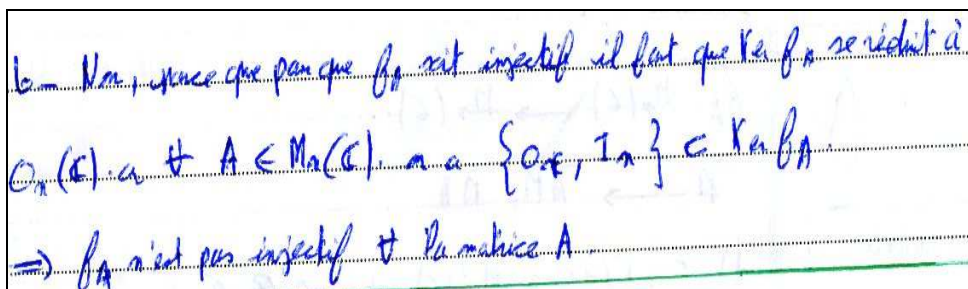 b- Non, parce que pour que f_A soit injectif il faut que Ker f_A se réduit à
O_n(ℂ). or ∀ A ∈ M_n(ℂ). on a {O_nℂ, I_n} ⊂ Ker f_A.
⇒ f_A n'est pas injectif ∀ la matrice A.